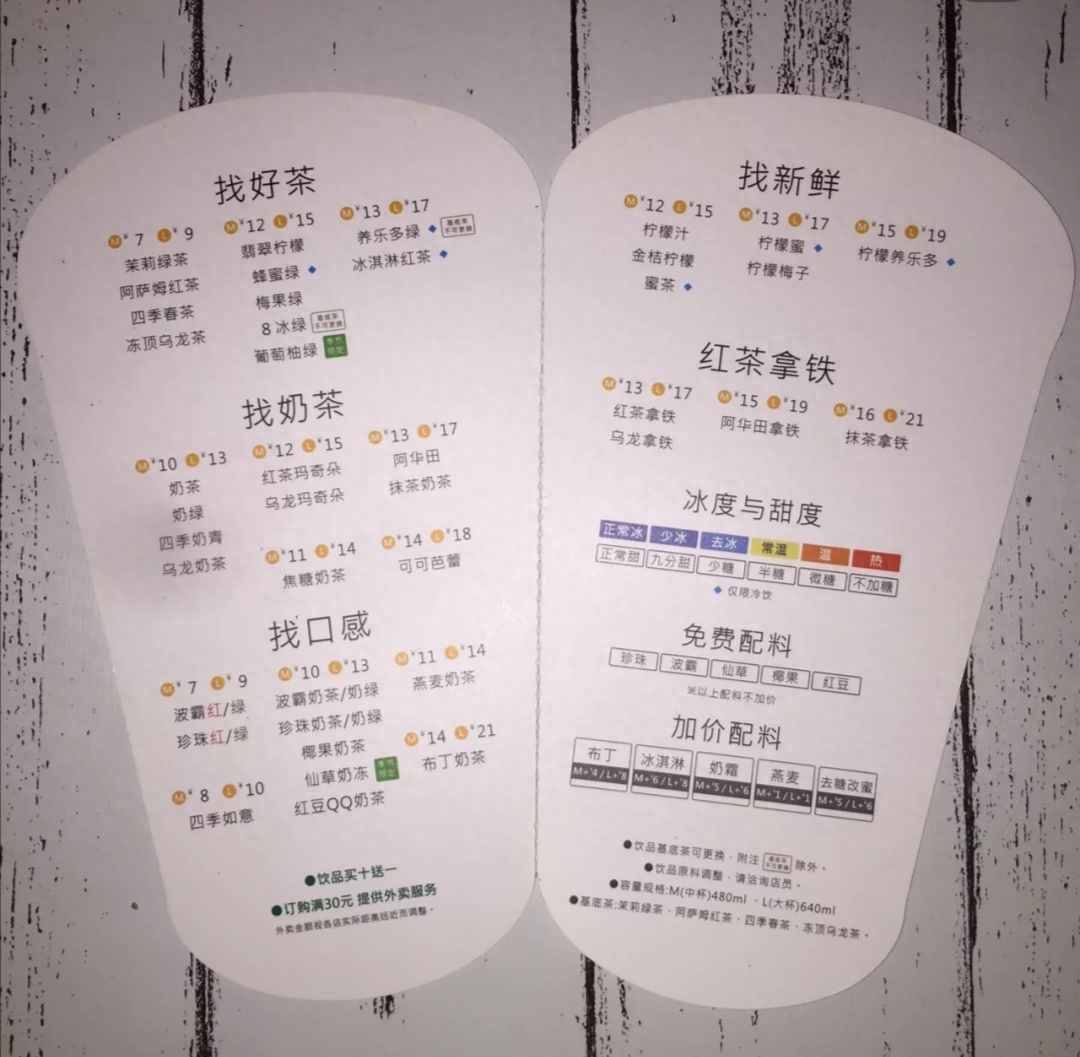 找好茶
M¥7 L¥9
茉莉绿茶
阿萨姆红茶
四季春茶
冻顶乌龙茶
M¥12 L¥15
翡翠柠檬
蜂蜜绿
梅果绿
8冰绿 基底茶不可更换
葡萄柚绿 季节限定
M¥13 L¥17
养乐多绿 基底茶不可更换
冰淇淋红茶
找奶茶
M¥10 L¥13
奶茶
奶绿
四季奶青
乌龙奶茶
M¥12 L¥15
红茶玛奇朵
乌龙玛奇朵
M¥13 L¥17
阿华田
抹茶奶茶
M¥11 L¥14
焦糖奶茶
M¥14 L¥18
可可芭蕾
找口感
M¥7 L¥9
波霸红/绿
珍珠红/绿
M¥8 L¥10
四季如意
M¥10 L¥13
波霸奶茶/奶绿
珍珠奶茶/奶绿
椰果奶茶
仙草奶冻 季节限定
红豆QQ奶茶
M¥11 L¥14
燕麦奶茶
M¥14 L¥21
布丁奶茶
●饮品买十送一
●订购满30元 提供外卖服务
外卖金额视各店实际距离远近而调整。
找新鲜
M¥12 L¥15
柠檬汁
金桔柠檬
蜜茶
M¥13 L¥17
柠檬蜜
柠檬梅子
M¥15 L¥19
柠檬养乐多
红茶拿铁
M¥13 L¥17
红茶拿铁
乌龙拿铁
M¥15 L¥19
阿华田拿铁
M¥16 L¥21
抹茶拿铁
冰度与甜度
正常冰 少冰 去冰 常温 温 热
正常甜 九分甜 少糖 半糖 微糖 不加糖
仅限冷饮
免费配料
珍珠 波霸 仙草 椰果 红豆
※以上配料不加价
加价配料
布丁 冰淇淋 奶霜 燕麦 去糖改蜜
M+¥4/L+¥8 M+¥6/L+¥8 M+¥5/L+¥6 M+¥1/L+¥1 M+¥5/L+¥6
●饮品基底茶可更换，附注 基底茶不可更换 除外。
●饮品原料调整，请洽询店员。
●容量规格:M(中杯)480ml、L(大杯)640ml
●基底茶:茉莉绿茶、阿萨姆红茶、四季春茶、冻顶乌龙茶。